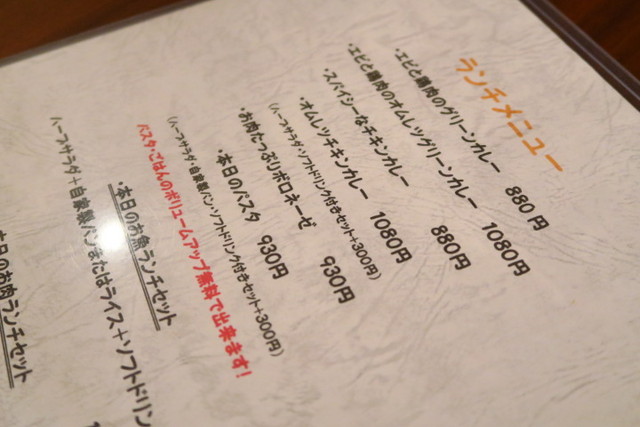 ランチメニュー
・エビと鶏肉のグリーンカレー 880円
・エビと鶏肉のオムレツグリーンカレー 1080円
・スパイシーなチキンカレー 880円
・オムレツチキンカレー 1080円
(ハーフサラダ・ソフトドリンク付きセット+300円)
・お肉たっぷりボロネーゼ 930円
・本日のパスタ 930円
(ハーフサラダ・自家製パン・ソフトドリンク付きセット+300円)
パスタ・ごはんのボリュームアップ無料で出来ます!
・本日のお魚ランチセット
ハーフサラダ+自家製パンまたはライス+ソフトドリン
本日のお肉ランチセット